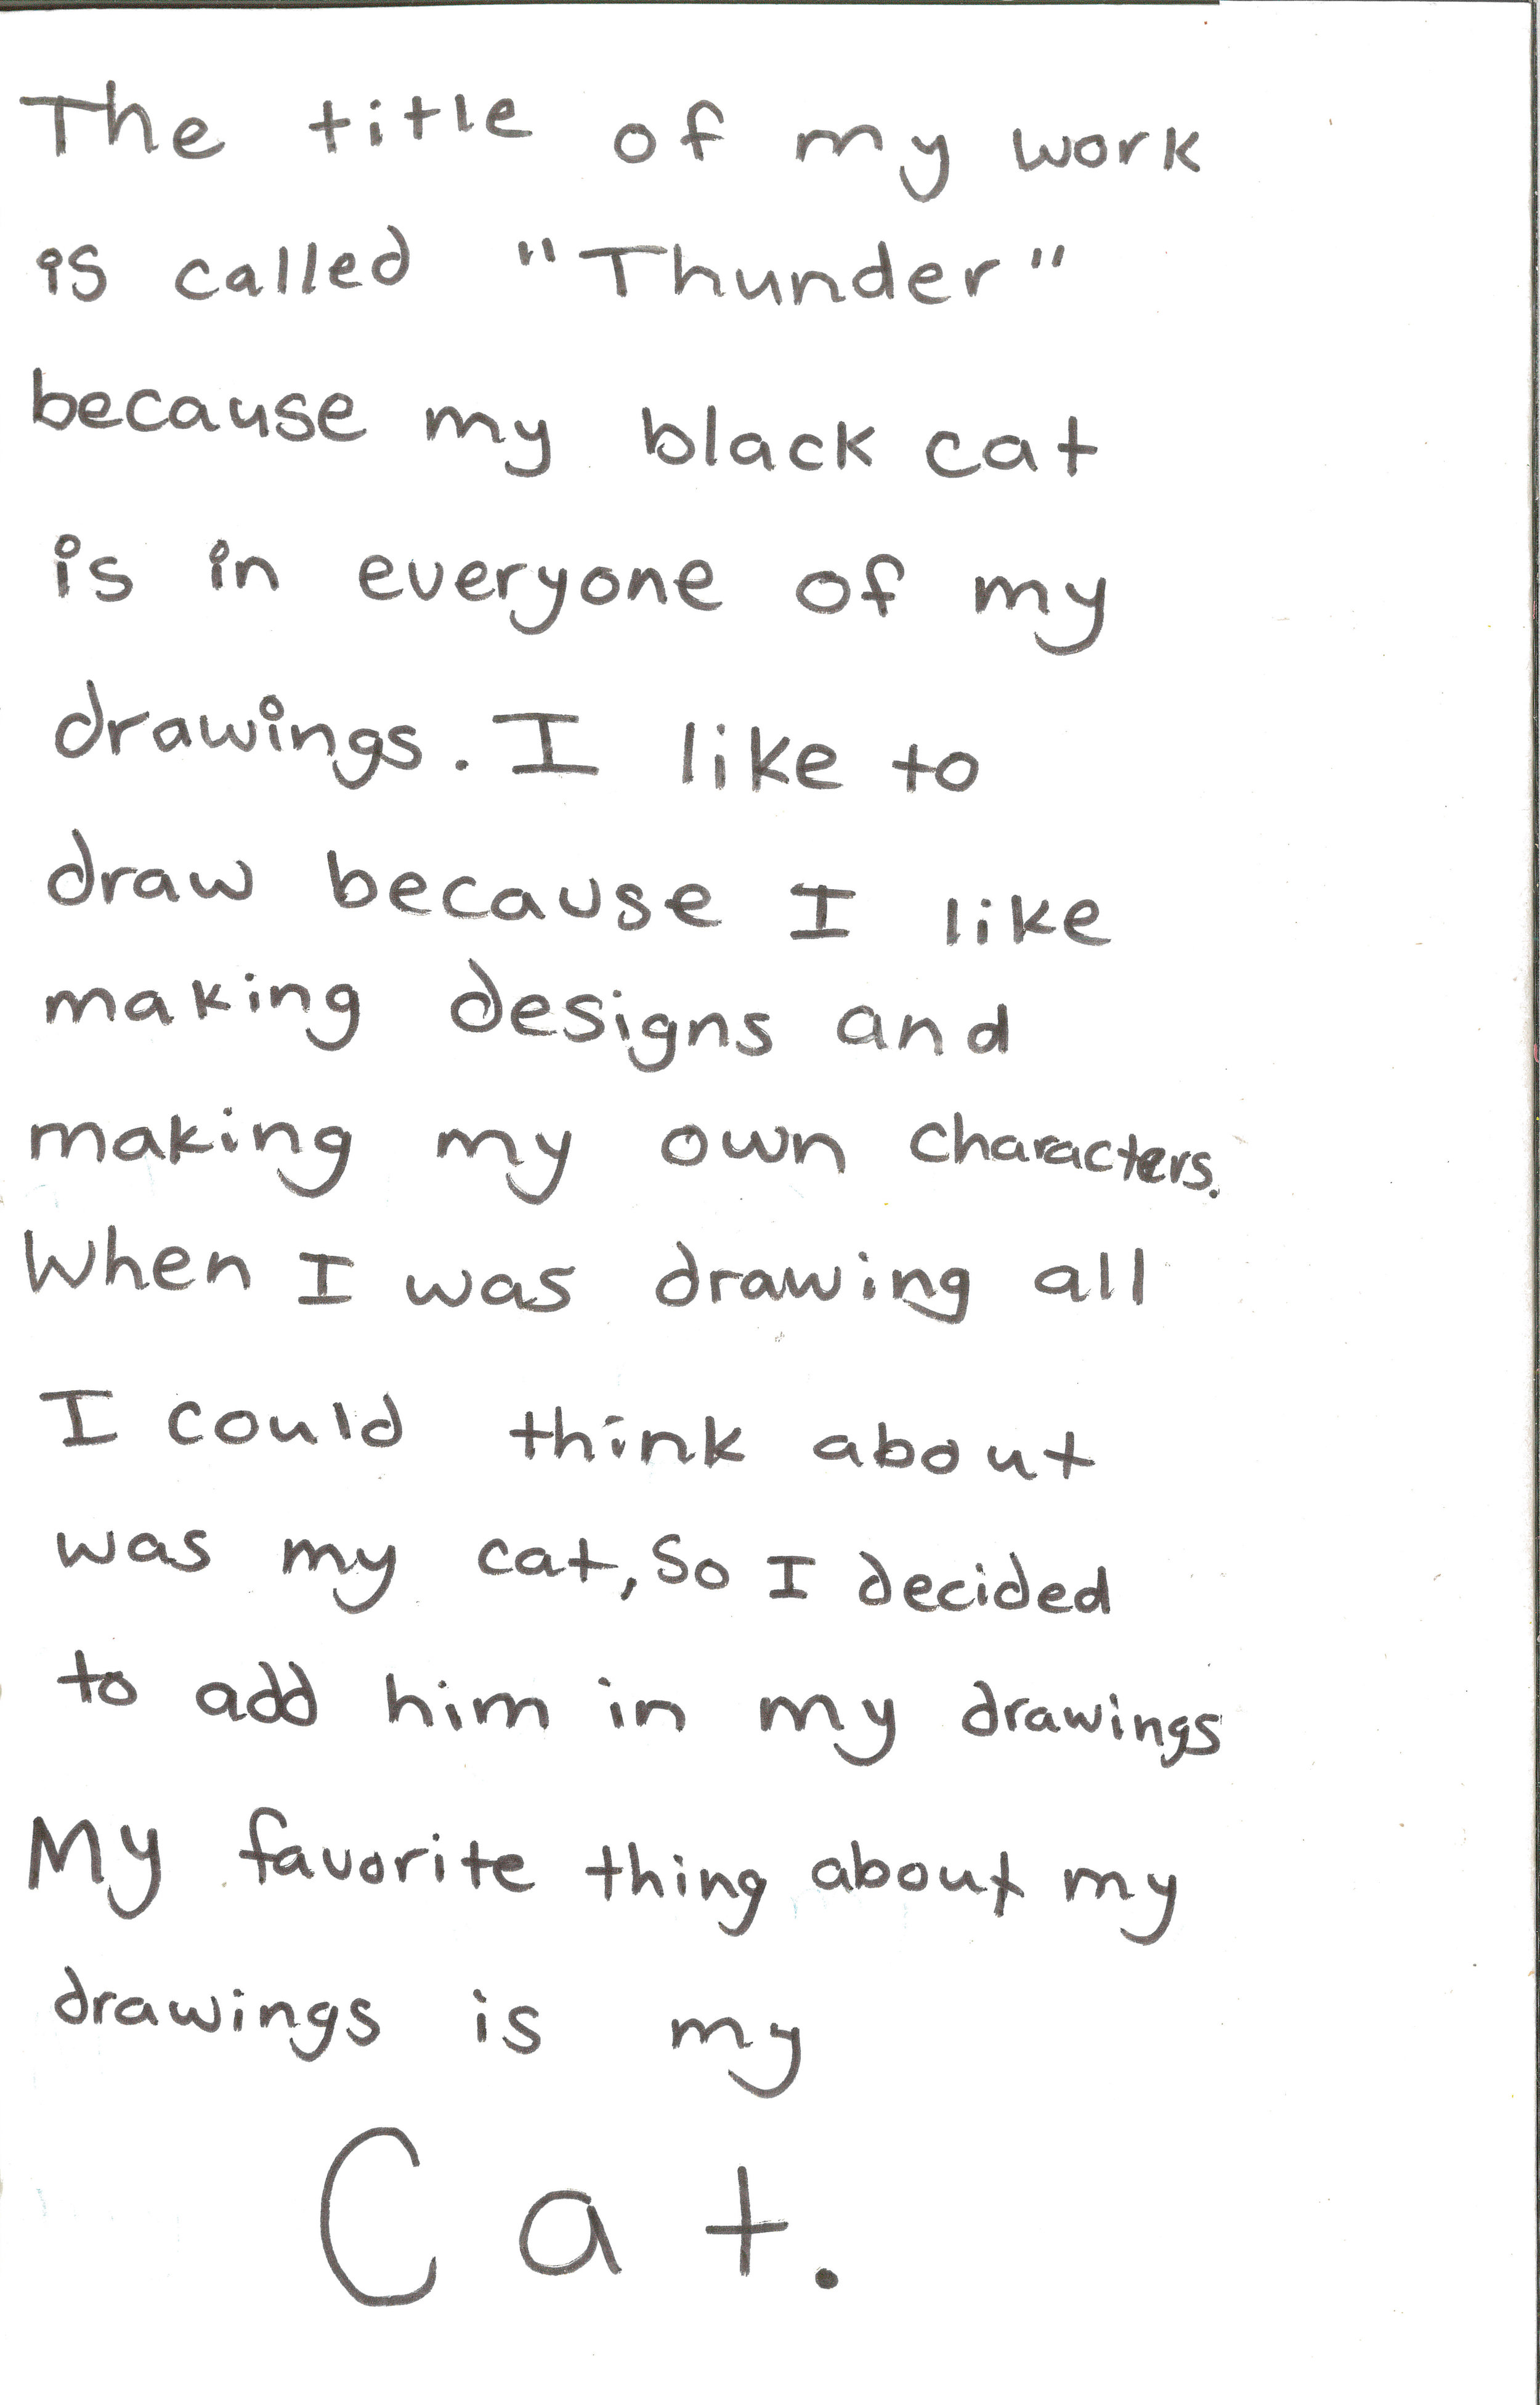 The title of my work
is called "Thunder"
because my black cat
is in everyone of my
drawings. I like to
draw because I like
making designs and
making my own characters.
When I was drawing all
I could think about
was my cat, so I decided
to add him in my drawings
My favorite thing about my
drawings is my
Cat.